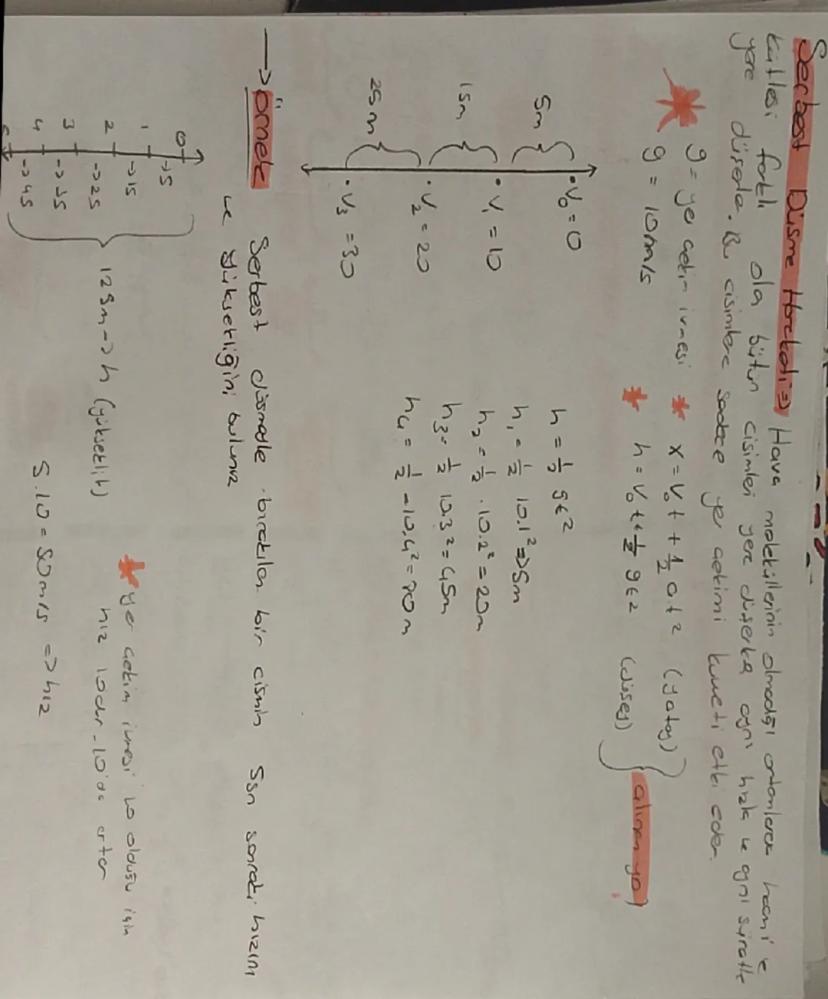 Serbest Düşme Hareketi => Hava moleküllerinin olmadığı ortamlarda hacmi ve
kütlesi farklı ola bütün cisimler yere düşerken aynı hızla ve aynı süratle
yere düşerler. Bu cisimlere sadece yer çekimi kuvveti etki eder.
g = yer çekim ivmesi
g = 10 m/s
x = V₀t + ½ at² (yatay)
h = V₀t + ½ gt² (düşey)
alınan yol
5m
15m
25m
V₀ = 0
V₁ = 10
V₂ = 20
V₃ = 30
h = ½ gt²
h₁ = ½ 10.1² => 5m
h₂ = ½ . 10.2² = 20m
h₃ = ½ 10.3² = 45m
h₄ = ½ - 10.4² = 80m
→ Örnek Serbest düşmede bırakılan bir cismin 5sn sonraki hızını
ve yüksekliğini bulunuz
0
1
2
3
4
5
→ 5
→ 15
→ 25
→ 35
→ 45
125m → h (yükseklik)
yer çekim ivmesi 10 olduğu için
hız 10ar - 10ar artar
5.10 = 50m/s => hız